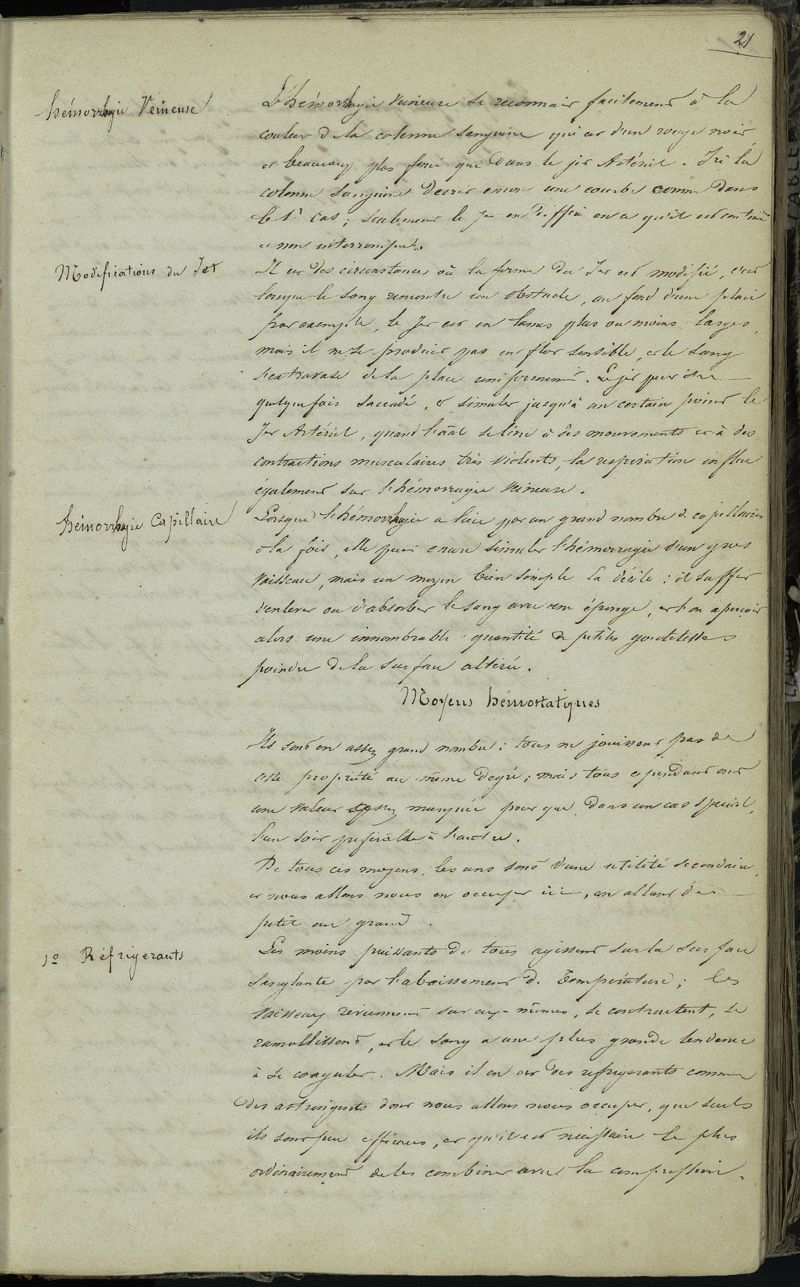 21
hémorrhagie Veineuse
L'hémorrhagie Veineuse se reconnait facilement à la
couleur de la colonne sanguine qui est d'un rouge noir
et beaucoup plus foncé que dans le jet Artériel. Ici la
colonne sanguine décrit encore une courbe comme dans
le 1er cas ; seulement le jet en diffère en ce qu'il est continu
et non interrompu.
Modifications du Jet
Il est des circonstances où la forme du Jet est modifié, c'est
lorsque le sang rencontre un obstacle, au fond d'une plaie
par exemple, le Jet est en lames plus ou moins larges,
mais il ne se produit pas un flot sensible, et le sang
s'extravase de la place uniformément. Le jet peut être
quelquefois saccadé, et simuler jusqu'à un certain point le
Jet Artériel, quand se livre à des mouvements et à des
contractions musculaires très violents, la respiration influe
également sur l'hémorragie Veineuse.
hémorrhagie Capillaire
Lorsque l'hémorrhagie a lieu par un grand nombre de capillaires
à la fois, elle peut encore simuler l'hémorragie d'un gros
vaisseau, mais un moyen bien simple la décèle : il suffit
d'enlever ou d'absorber le sang avec une éponge, et l'on aperçoit
alors une innombrable quantité de petites goutelettes
poindre de la surface altérée.
Moyens hémostatiques
Ils sont en assez grand nombre ; tous ne jouissent pas de
cette propriété au même degré ; mais tous cependant ont
une valeur assez marquée pour que dans un cas spécial,
l'un soit préférable à l'autre.
De tous ces moyens, les uns sont d'une utilité secondaire,
et nous allons nous en occuper ici, en allant du
petit au grand.
1º Réfrigerants
Les moins puissants de tous agissent sur la surface
sanglante par l'abaissement de température ; les
vaisseaux reviennent sur eux-mêmes, se contractent, se
ramollissent, et le sang a une plus grande tendance
à se coaguler. Mais il en est des réfrigerants comme
des astringents dont nous allons nous occuper, que seuls
ils sont peu efficaces, et qu'il est nécessaire le plus
ordinairement de les combiner avec la compression.